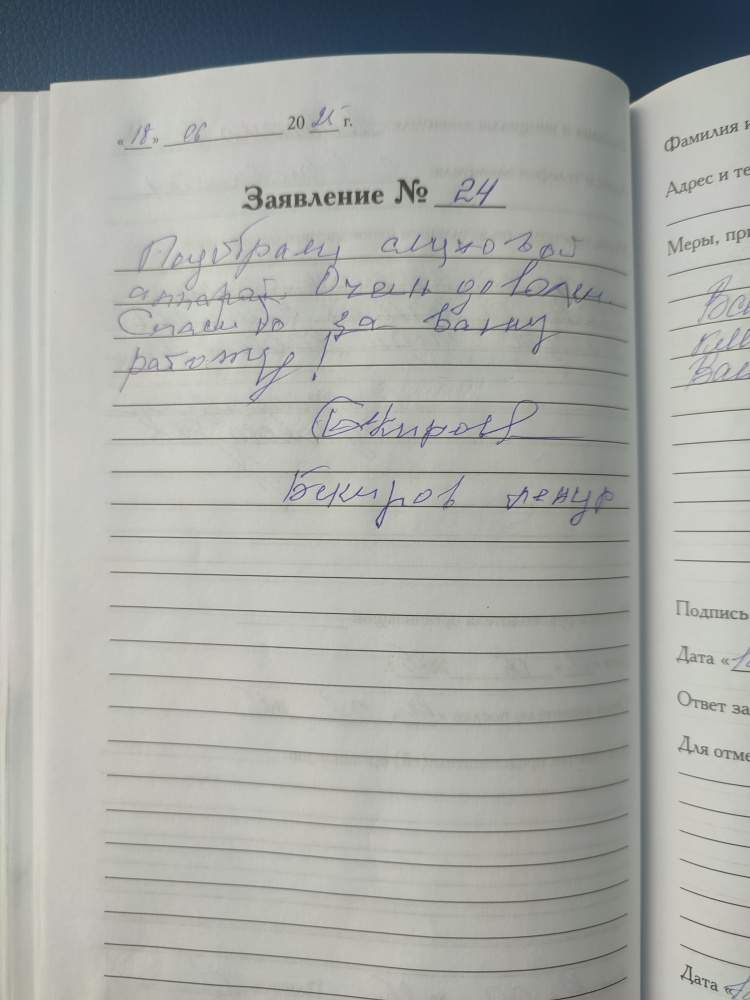 «18» 06 2025 г.
Заявление № 24
Подбрали слуховой
аппарат. Очен доволен
Спасибо за вашу
работу!
Бекиров
Бекиров Ленур
Фамилия и
Адрес и те
Меры, при
Вал
Подпись
Дата «
Ответ за
Для отме
Дата «